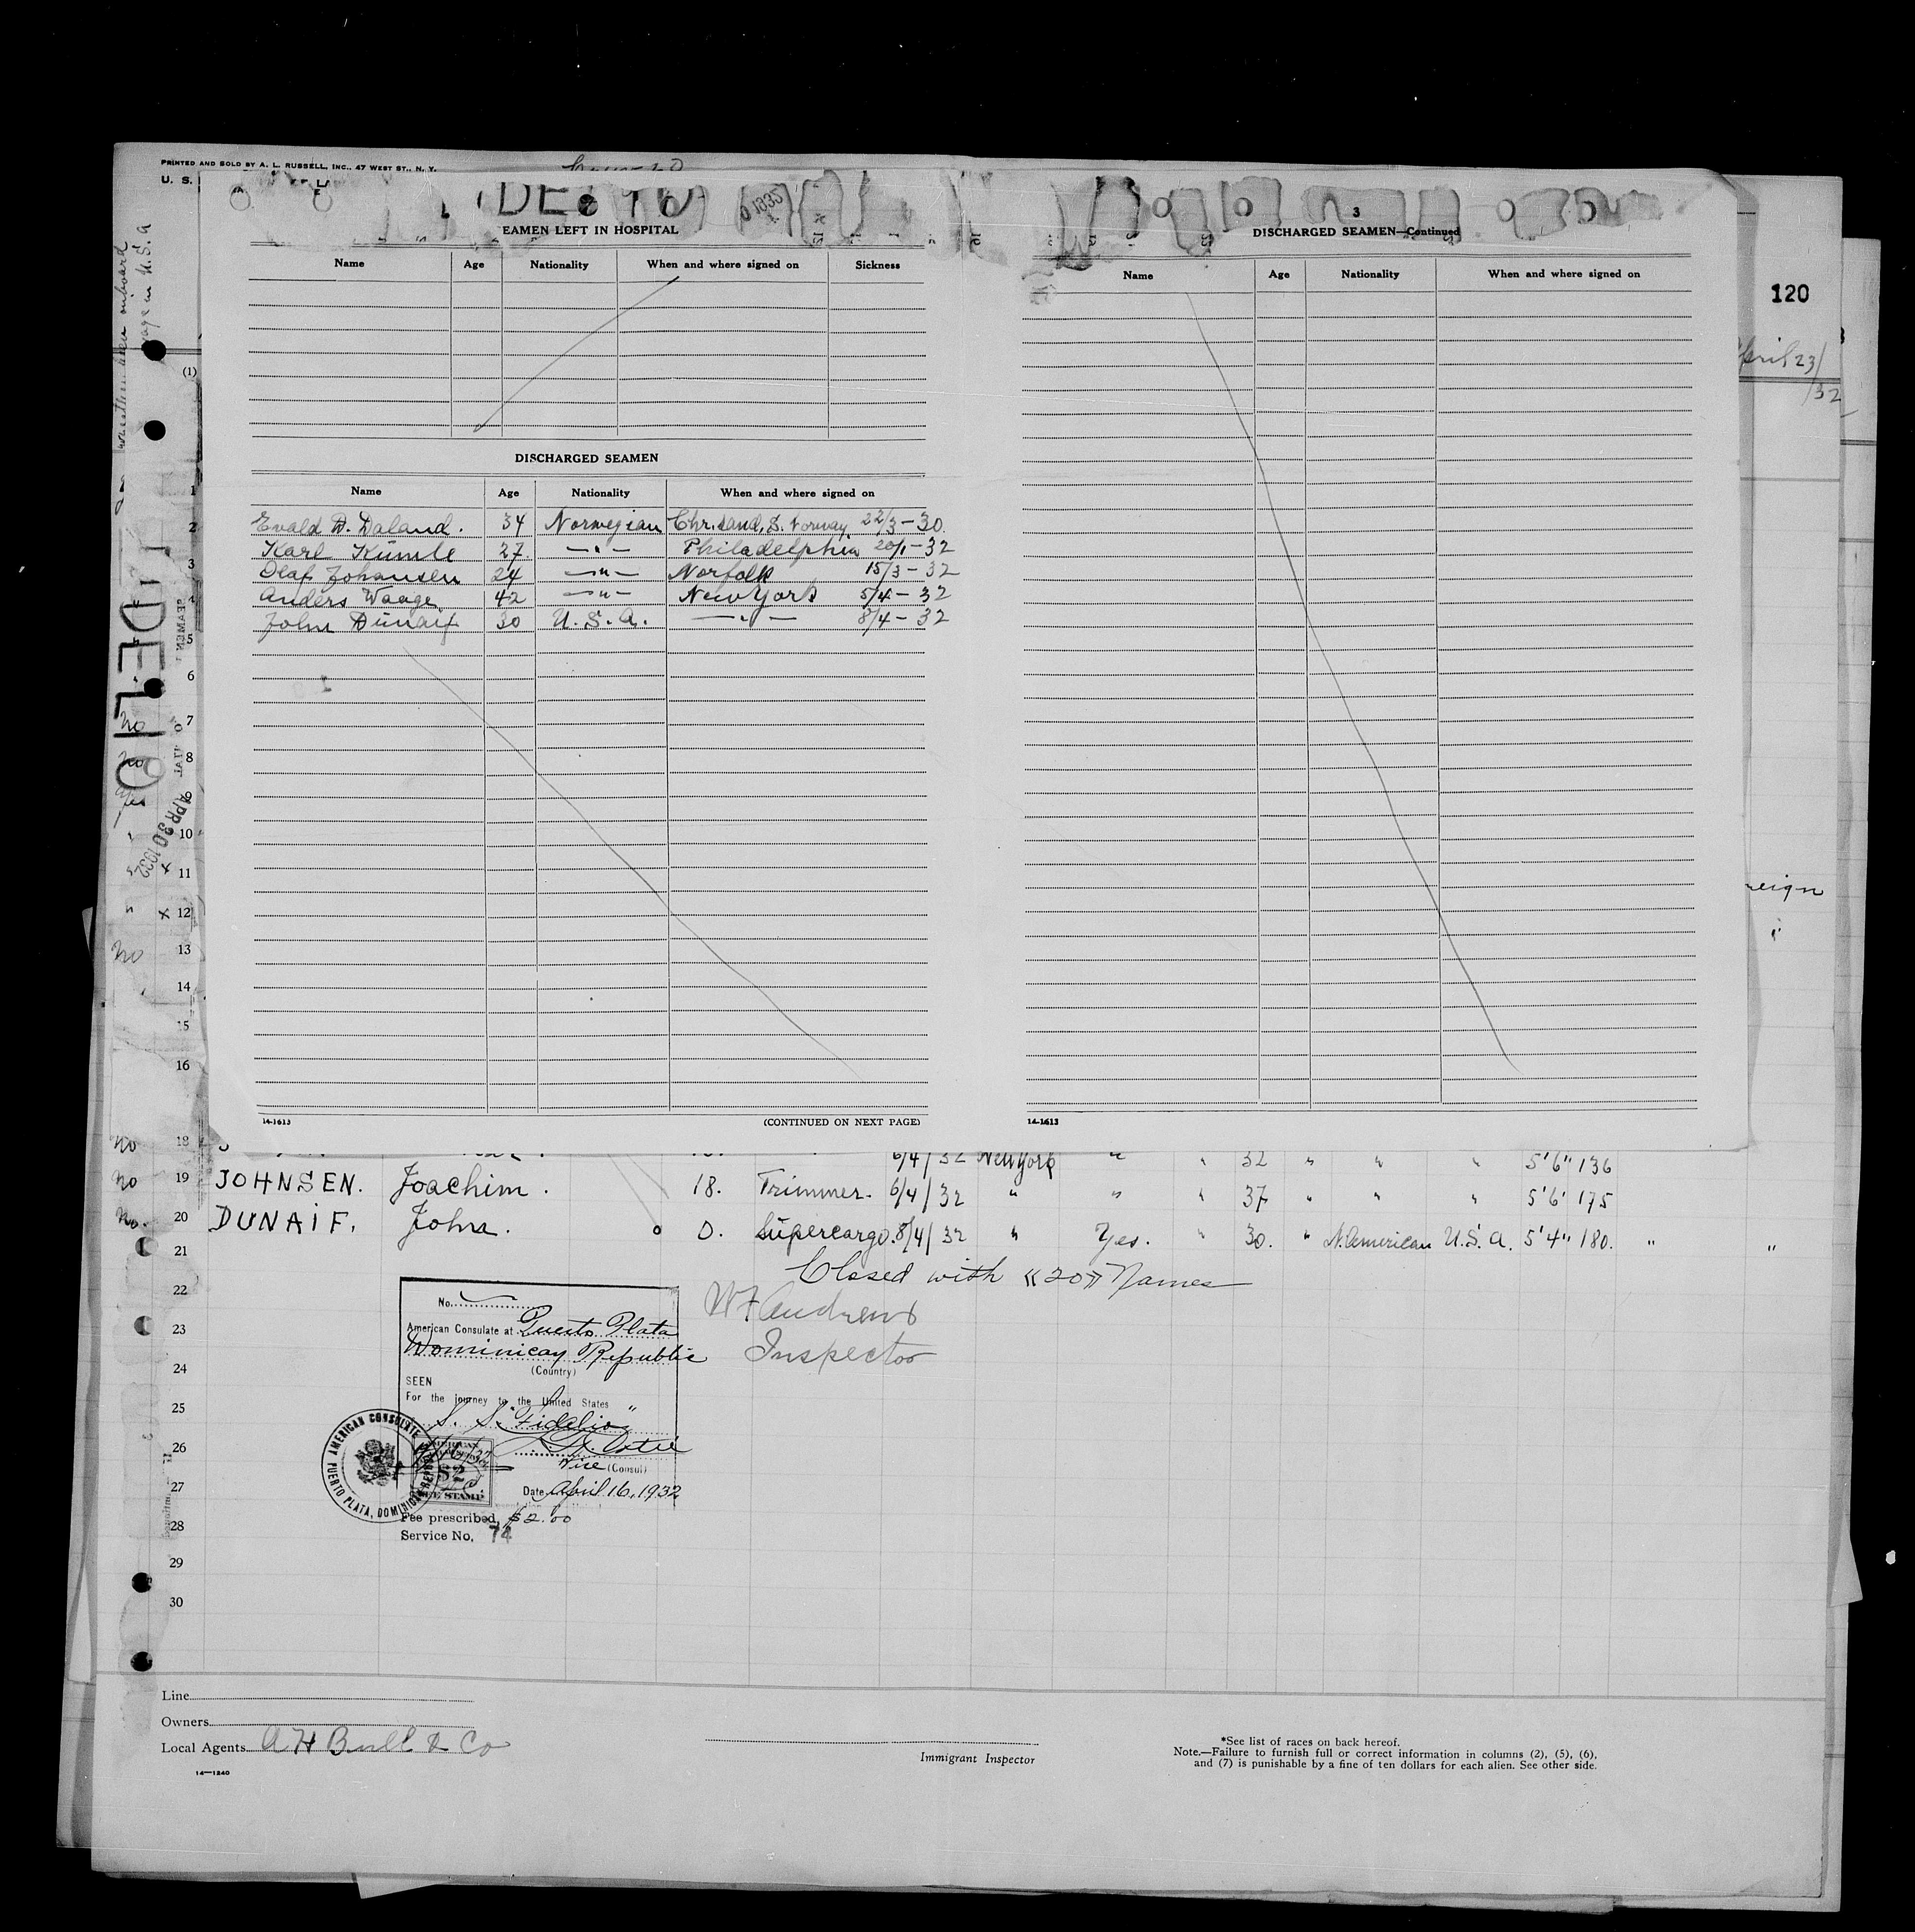 PRINTED AND SOLD BY A. L. RUSSELL, INC., 47 WEST ST., N. Y.
U. S.
EAMEN LEFT IN HOSPITAL
Name Age Nationality When and where signed on Sickness
DISCHARGED SEAMEN
Name Age Nationality When and where signed on
Evald D. Daland. 34 Norwegian Chr.sand, S. Norway 22/3-30.
Karl Kümle 27. —"— Philadelphia 20/1-32
Olaf Johansen 24 —"— Norfolk 15/3-32
Anders Waage 42 —"— New York 5/4-32
John Dunaif 30 U.S.A. —"— 8/4-32
14-1613
(CONTINUED ON NEXT PAGE)
3
DISCHARGED SEAMEN—Continued
Name Age Nationality When and where signed on
14-1613
120
April 23/
/32
eign
(1)
1
2
3
4
5
6
no 7
no 8
Yes 9
APR 30 1932
10
11
12
no 13
14
15
16
no 18 6/4/32 New York " " 32 " " " 5'6" 136
no 19 JOHNSEN. Joachim. 18. Trimmer. 6/4/32 " " " 37 " " " 5'6' 175
no. 20 DUNAIF. John. 0. Supercargo. 8/4/32 " Yes. " 30. " N.American U.S.A. 5'4" 180. " "
21 Closed with «20» Names
22 WF Andrews
23 Inspector
24
25
26
27
28
29
30
No.
American Consulate at Puerto Plata
Dominican Republic
(Country)
SEEN
For the journey to the United States
S. S. "Fidelio"
Vice (Consul)
Date April 16, 1932
Fee prescribed, $2.00
Service No. 74
AMERICAN CONSULATE
PUERTO PLATA, DOMINICAN REPUBLIC
$2
FEE STAMP
Line
Owners
Local Agents A H Bull & Co
14—1240
Immigrant Inspector
*See list of races on back hereof.
Note.—Failure to furnish full or correct information in columns (2), (5), (6),
and (7) is punishable by a fine of ten dollars for each alien. See other side.